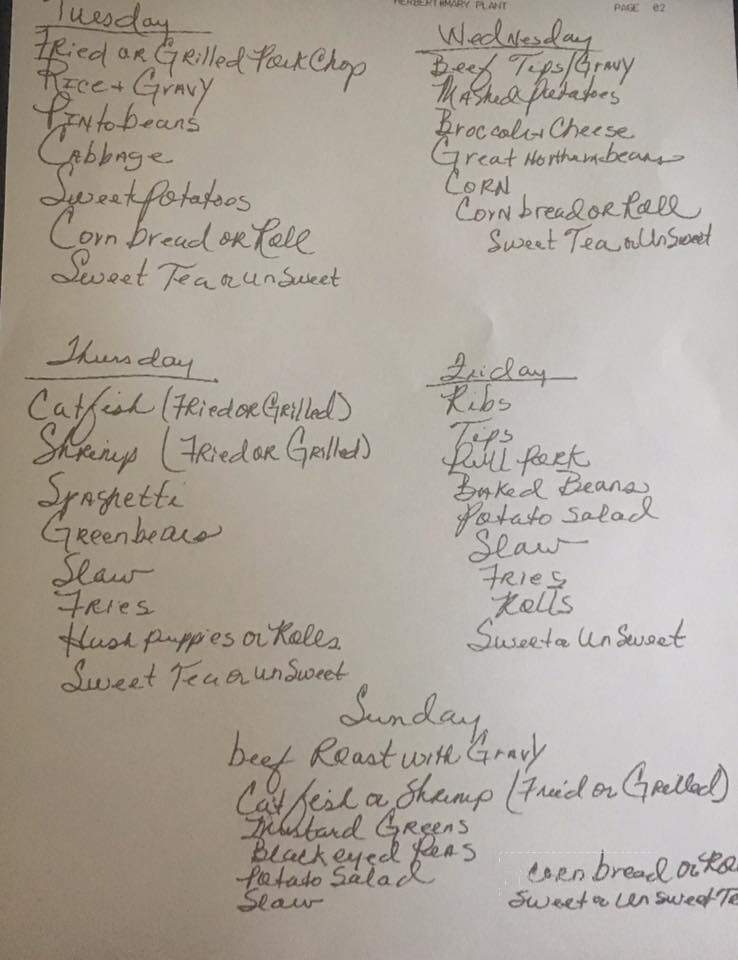 HERBERT&MARY PLANT PAGE 02
Tuesday
Fried or Grilled Pork Chop
Rice + Gravy
Pinto beans
Cabbage
Sweet Potatoes
Corn bread or Roll
Sweet Tea or UnSweet
Wednesday
Beef Tips/Gravy
Mashed Potatoes
Broccoli + Cheese
Great Northern beans
Corn
Corn bread or Roll
Sweet Tea or UnSweet
Thursday
Catfish (Fried or Grilled)
Shrimp (Fried or Grilled)
Spaghetti
Greenbeans
Slaw
Fries
Hush puppies or Rolls
Sweet Tea or UnSweet
Friday
Ribs
Tips
Pull Pork
Baked Beans
Potato Salad
Slaw
Fries
Rolls
Sweet or UnSweet
Sunday
beef Roast with Gravy
Catfish or Shrimp (Fried or Grilled)
Mustard Greens
Blackeyed Peas
Potato Salad
Slaw
Corn bread or Ro
Sweet or UnSweet Te